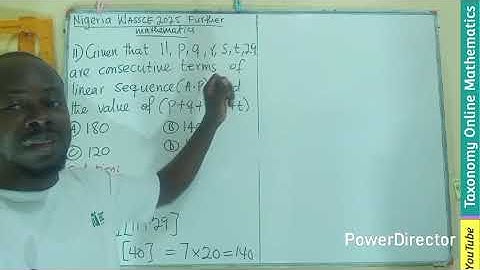 Nigeria WASSCE 2025 Further
mathematics
11) Given that 11, p, q, r, s, t, 29
are consecutive terms of
linear sequence (A.P)
the value of (p+q+ +t)
(A) 180
(B)
(C) 120
(D)
[11+29]
[40] = 7×20=140
PowerDirector
Taxonomy Online Mathematics
YouTube